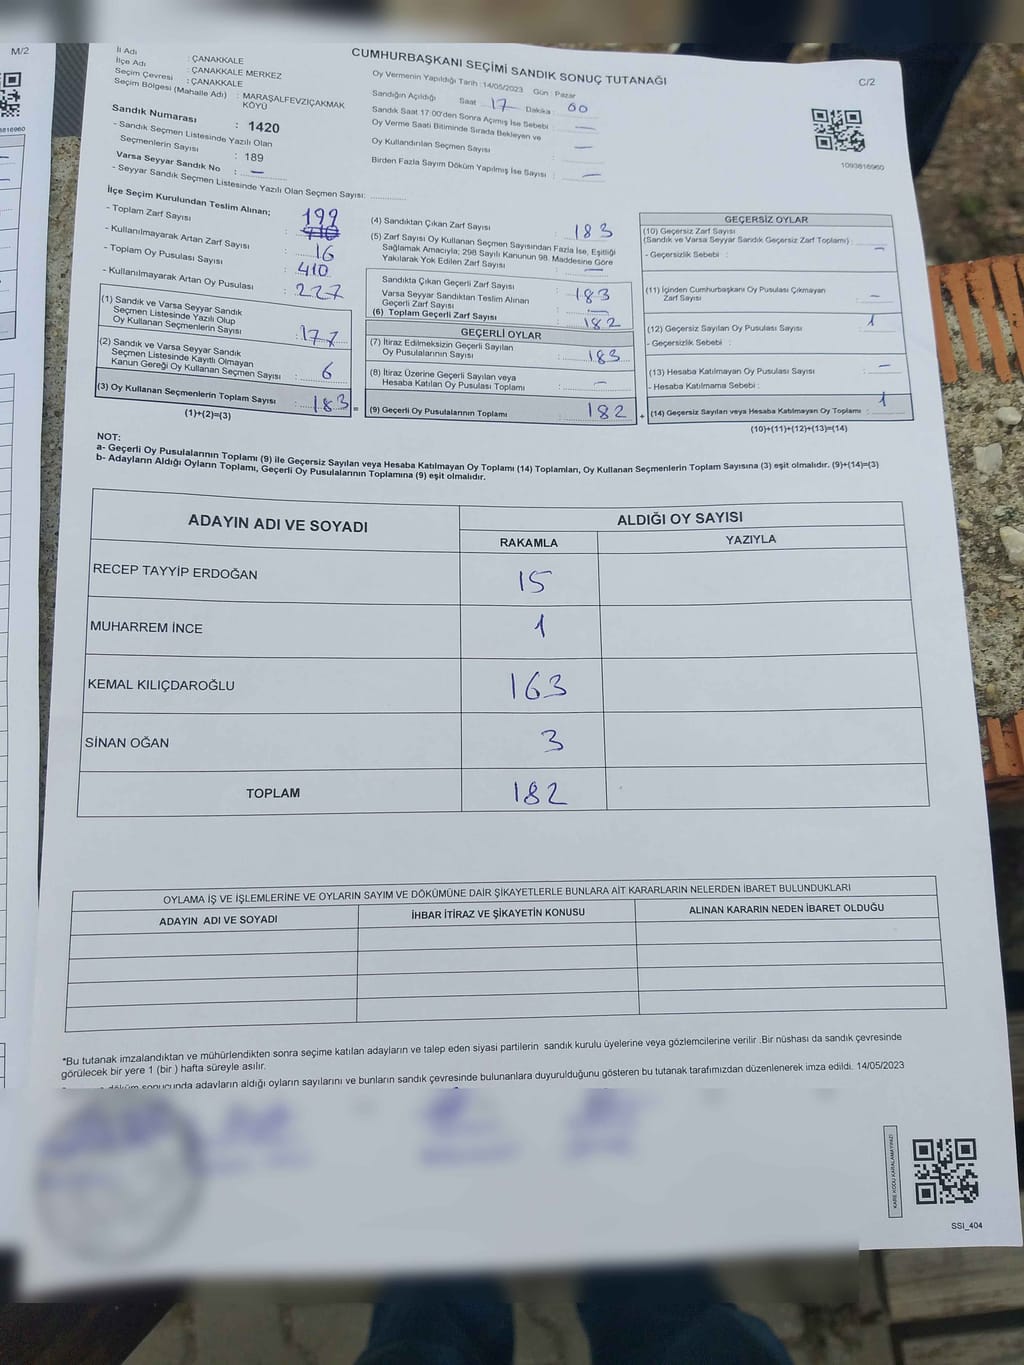 M/2
CUMHURBAŞKANI SEÇİMİ SANDIK SONUÇ TUTANAĞI
C/2
İl Adı : ÇANAKKALE
İlçe Adı : ÇANAKKALE MERKEZ
Seçim Çevresi : ÇANAKKALE
Seçim Bölgesi (Mahalle Adı) : MARAŞALFEVZİÇAKMAK KÖYÜ
Sandık Numarası : 1420
- Sandık Seçmen Listesinde Yazılı Olan
Seçmenlerin Sayısı : 189
Varsa Seyyar Sandık No : —
- Seyyar Sandık Seçmen Listesinde Yazılı Olan Seçmen Sayısı: ..............
Oy Vermenin Yapıldığı Tarih : 14/05/2023 Gün : Pazar
Sandığın Açıldığı Saat 17 Dakika : 00
Sandık Saat 17:00'den Sonra Açımış İse Sebebi : —
Oy Verme Saati Bitiminde Sırada Bekleyen ve
Oy Kullandırılan Seçmen Sayısı : —
Birden Fazla Sayım Döküm Yapılmış İse Sayısı : —
1093616960
İlçe Seçim Kurulundan Teslim Alınan;
199
- Toplam Zarf Sayısı : 410
- Kullanılmayarak Artan Zarf Sayısı : 16
- Toplam Oy Pusulası Sayısı : 410
- Kullanılmayarak Artan Oy Pusulası : 227
(1) Sandık ve Varsa Seyyar Sandık
Seçmen Listesinde Yazılı Olup
Oy Kullanan Seçmenlerin Sayısı : 177
(2) Sandık ve Varsa Seyyar Sandık
Seçmen Listesinde Kayıtlı Olmayan
Kanun Gereği Oy Kullanan Seçmen Sayısı : 6
(3) Oy Kullanan Seçmenlerin Toplam Sayısı : 183
(1)+(2)=(3)
=
(4) Sandıktan Çıkan Zarf Sayısı : 183
(5) Zarf Sayısı Oy Kullanan Seçmen Sayısından Fazla İse, Eşitliği
Sağlamak Amacıyla; 298 Sayılı Kanunun 98. Maddesine Göre
Yakılarak Yok Edilen Zarf Sayısı : —
Sandıkta Çıkan Geçerli Zarf Sayısı : 183
Varsa Seyyar Sandıktan Teslim Alınan
Geçerli Zarf Sayısı : —
(6) Toplam Geçerli Zarf Sayısı : 182
GEÇERLİ OYLAR
(7) İtiraz Edilmeksizin Geçerli Sayılan
Oy Pusulalarının Sayısı : 183
(8) İtiraz Üzerine Geçerli Sayılan veya
Hesaba Katılan Oy Pusulası Toplamı : —
(9) Geçerli Oy Pusulalarının Toplamı : 182
+
GEÇERSİZ OYLAR
(10) Geçersiz Zarf Sayısı
(Sandık ve Varsa Seyyar Sandık Geçersiz Zarf Toplamı) : —
- Geçersizlik Sebebi :
(11) İçinden Cumhurbaşkanı Oy Pusulası Çıkmayan
Zarf Sayısı : —
(12) Geçersiz Sayılan Oy Pusulası Sayısı : 1
- Geçersizlik Sebebi :
(13) Hesaba Katılmayan Oy Pusulası Sayısı : —
- Hesaba Katılmama Sebebi :
(14) Geçersiz Sayılan veya Hesaba Katılmayan Oy Toplamı : 1
(10)+(11)+(12)+(13)=(14)
NOT:
a- Geçerli Oy Pusulalarının Toplamı (9) ile Geçersiz Sayılan veya Hesaba Katılmayan Oy Toplamı (14) Toplamları, Oy Kullanan Seçmenlerin Toplam Sayısına (3) eşit olmalıdır. (9)+(14)=(3)
b- Adayların Aldığı Oyların Toplamı, Geçerli Oy Pusulalarının Toplamına (9) eşit olmalıdır.
ADAYIN ADI VE SOYADI
ALDIĞI OY SAYISI
RAKAMLA YAZIYLA
RECEP TAYYİP ERDOĞAN 15
MUHARREM İNCE 1
KEMAL KILIÇDAROĞLU 163
SİNAN OĞAN 3
TOPLAM 182
OYLAMA İŞ VE İŞLEMLERİNE VE OYLARIN SAYIM VE DÖKÜMÜNE DAİR ŞİKAYETLERLE BUNLARA AİT KARARLARIN NELERDEN İBARET BULUNDUKLARI
ADAYIN ADI VE SOYADI İHBAR İTİRAZ VE ŞİKAYETİN KONUSU ALINAN KARARIN NEDEN İBARET OLDUĞU
*Bu tutanak imzalandıktan ve mühürlendikten sonra seçime katılan adayların ve talep eden siyasi partilerin sandık kurulu üyelerine veya gözlemcilerine verilir .Bir nüshası da sandık çevresinde
görülecek bir yere 1 (bir ) hafta süreyle asılır.
döküm sonucunda adayların aldığı oyların sayılarını ve bunların sandık çevresinde bulunanlara duyurulduğunu gösteren bu tutanak tarafımızdan düzenlenerek imza edildi. 14/05/2023
KARE KODU KARALAMAYINIZ!
SSI_404